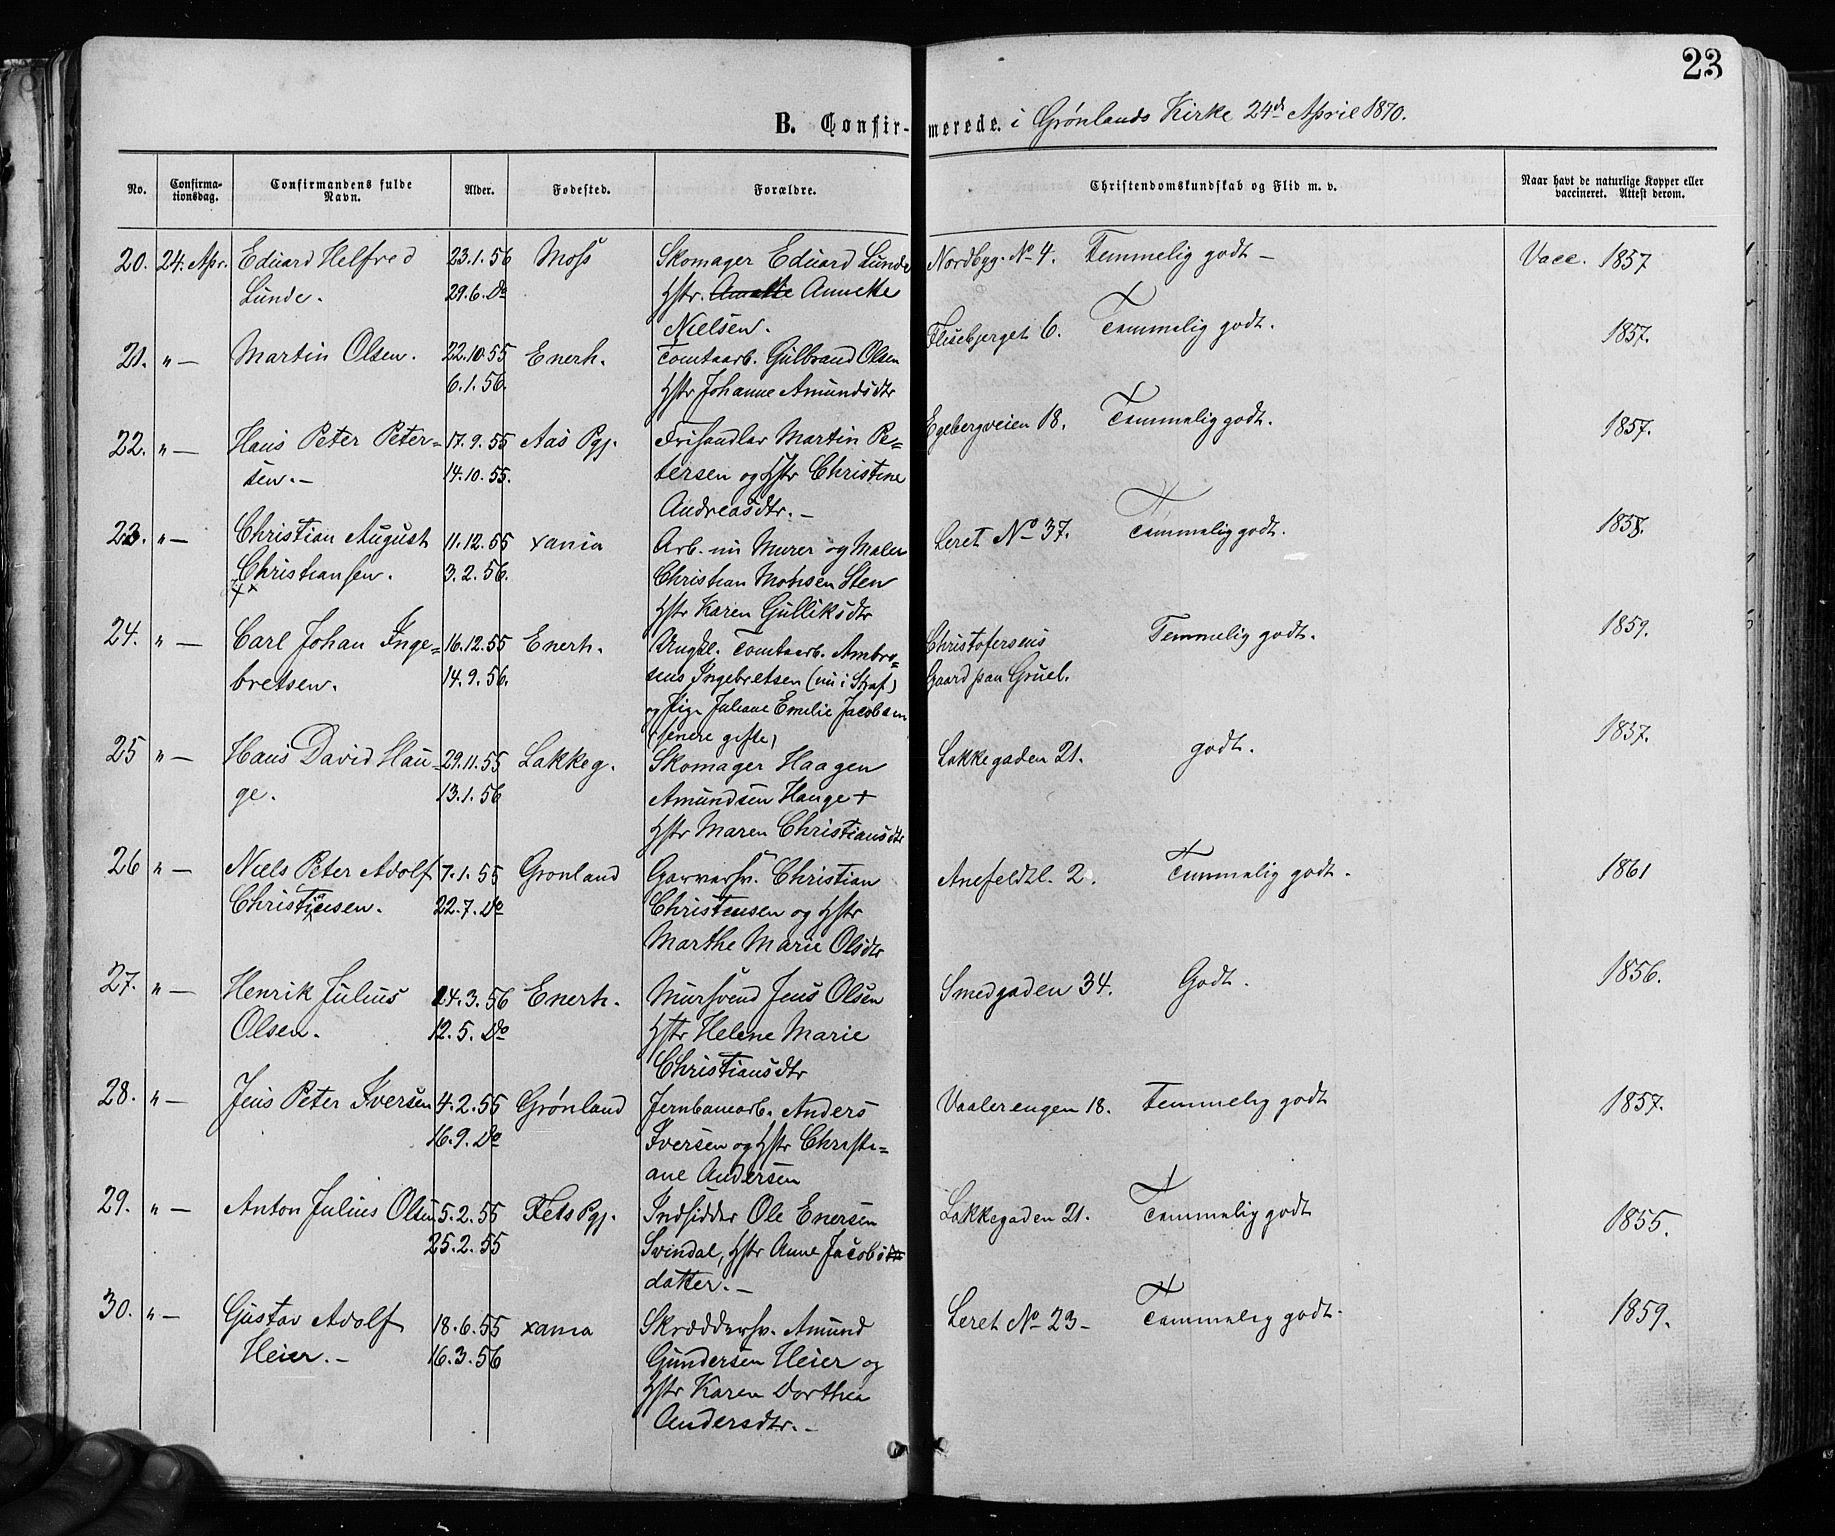 23
B. Confir-merede. i Grønlands Kirke 24de April 1870.
No. Confirma-tionsdag. Confirmandens fulde Navn. Alder. Fødested. Forældre. Christendomskundskab og Flid m. v. Naar havt de naturlige Kopper eller vaccineret. Attest derom.
20. 24. Apr. Eduard Helfred 23.1.56 Moss Skomager Eduard Lunde Nordbyg. No 4. Temmelig godt – Vacc. 1857
Lunde. 29.6. Do Hstr. Amalie Anneke
Nielsen.
21. " — Martin Olsen. 22.10.55 Enerh. Tomtaarb. Gulbrand Olsen Flisebjerget 6. Temmelig godt. 1857.
6.1.56. Hstr Johanne Amundsdtr
22. " — Hans Peter Peter- 17.9.55 Aas Pgj. Frihandler Martin Pe- Egebergveien 18. Temmelig godt. 1857.
sen. – 14.10.55. tersen og Hstr Christine
Andreasdtr. –
23. " — Christian August 11.12.55 xania Arb. nu Murer og Maler Leret No 37. Temmelig godt. 1858.
Christiansen. 3.2.56. Christian Sten
Hstr Karen Gulliksdtr
24. " — Carl Johan Inge- 16.12.55 Enerh. Ungkl. Tomtaarb. Ambro- Christofersens Temmelig godt. 1859.
bretsen. 14.9.56. sius Ingebretsen (nu i Straf) Gaard paa Grued.
og Pige Juliane Emilie Jacobsen
(senere gifte)
25 " — Hans David Hau- 29.11.55 Lakkeg. Skomager Haagen Lakkegaden 21. godt. 1857.
ge. 13.1.56 Amundsen Hauge +
Hstr Maren Christiansdtr
26 " — Niels Peter Adolf 7.1.55 Grønland Garversv. Christian Anefeldtl. 2. Temmelig godt. 1861
Christensen. 22.7. Do Christensen og Hstr
Marthe Marie Olsdtr
27. " — Henrik Julius 24.3.56 Enerh. Mursvend Jens Olsen Smedgaden 34. Godt. 1856.
Olsen. 12.5. Do Hstr Helene Marie
Christiansdtr
28. " — Jens Peter Iversen 4.2.55 Grønland Jernbanearb. Anders Vaalerengen 18. Temmelig godt 1857.
16.9. Do Iversen og Hstr Christi-
ane Andersen
29. " — Anton Julius Olsen 5.2.55 Fets Pgj. Indsidder Ole Enersen Lakkegaden 21. Temmelig godt 1855.
25.2.55 Svindal, Hstr Anne Jacobs
datter. –
30. " — Gustav Adolf 18.6.55 xania Skræddersv. Amund Leret No 23 – Temmelig godt. 1859.
Heier. – 16.3.56 Gundersen Heier og
Hstr Karen Dorthea
Andersdtr. –